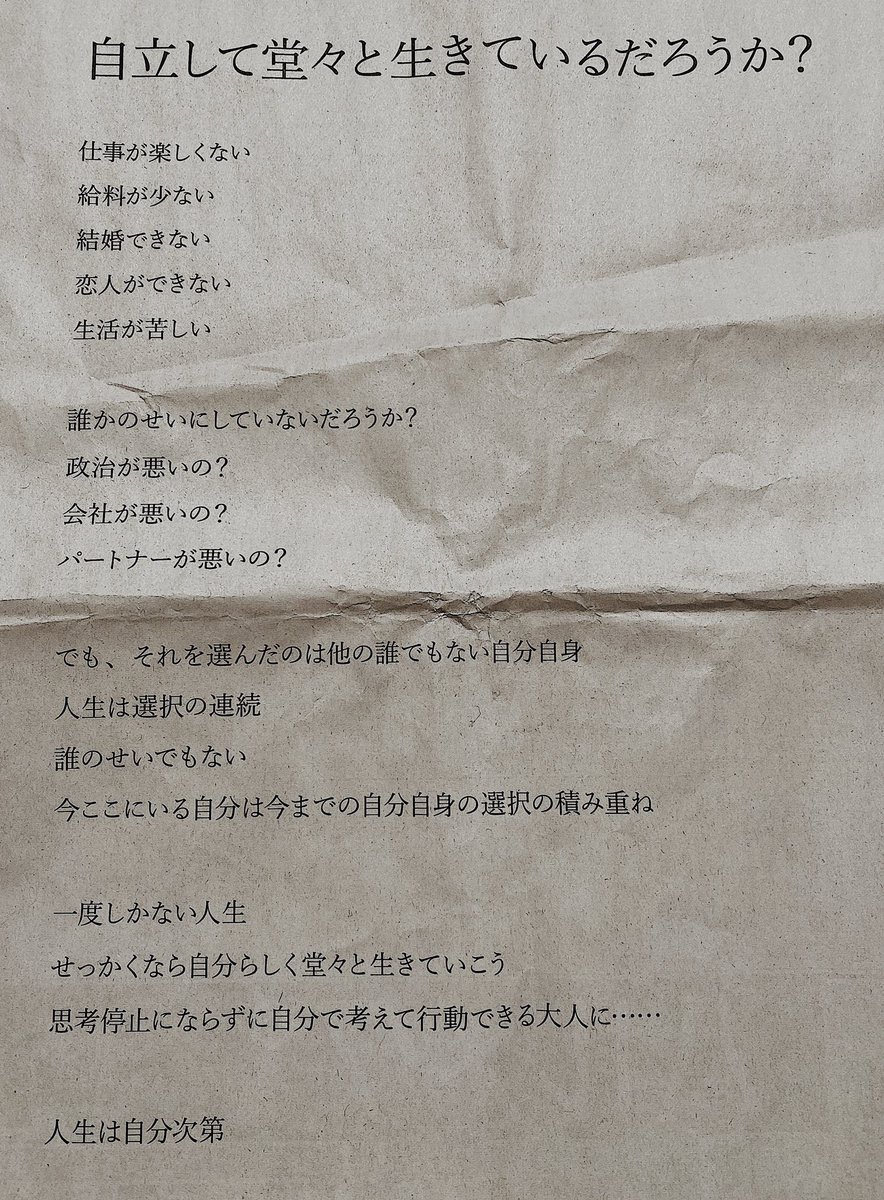 自立して堂々と生きているだろうか?
仕事が楽しくない
給料が少ない
結婚できない
恋人ができない
生活が苦しい
誰かのせいにしていないだろうか?
政治が悪いの?
会社が悪いの?
パートナーが悪いの?
でも、それを選んだのは他の誰でもない自分自身
人生は選択の連続
誰のせいでもない
今ここにいる自分は今までの自分自身の選択の積み重ね
一度しかない人生
せっかくなら自分らしく堂々と生きていこう
思考停止にならずに自分で考えて行動できる大人に……
人生は自分次第